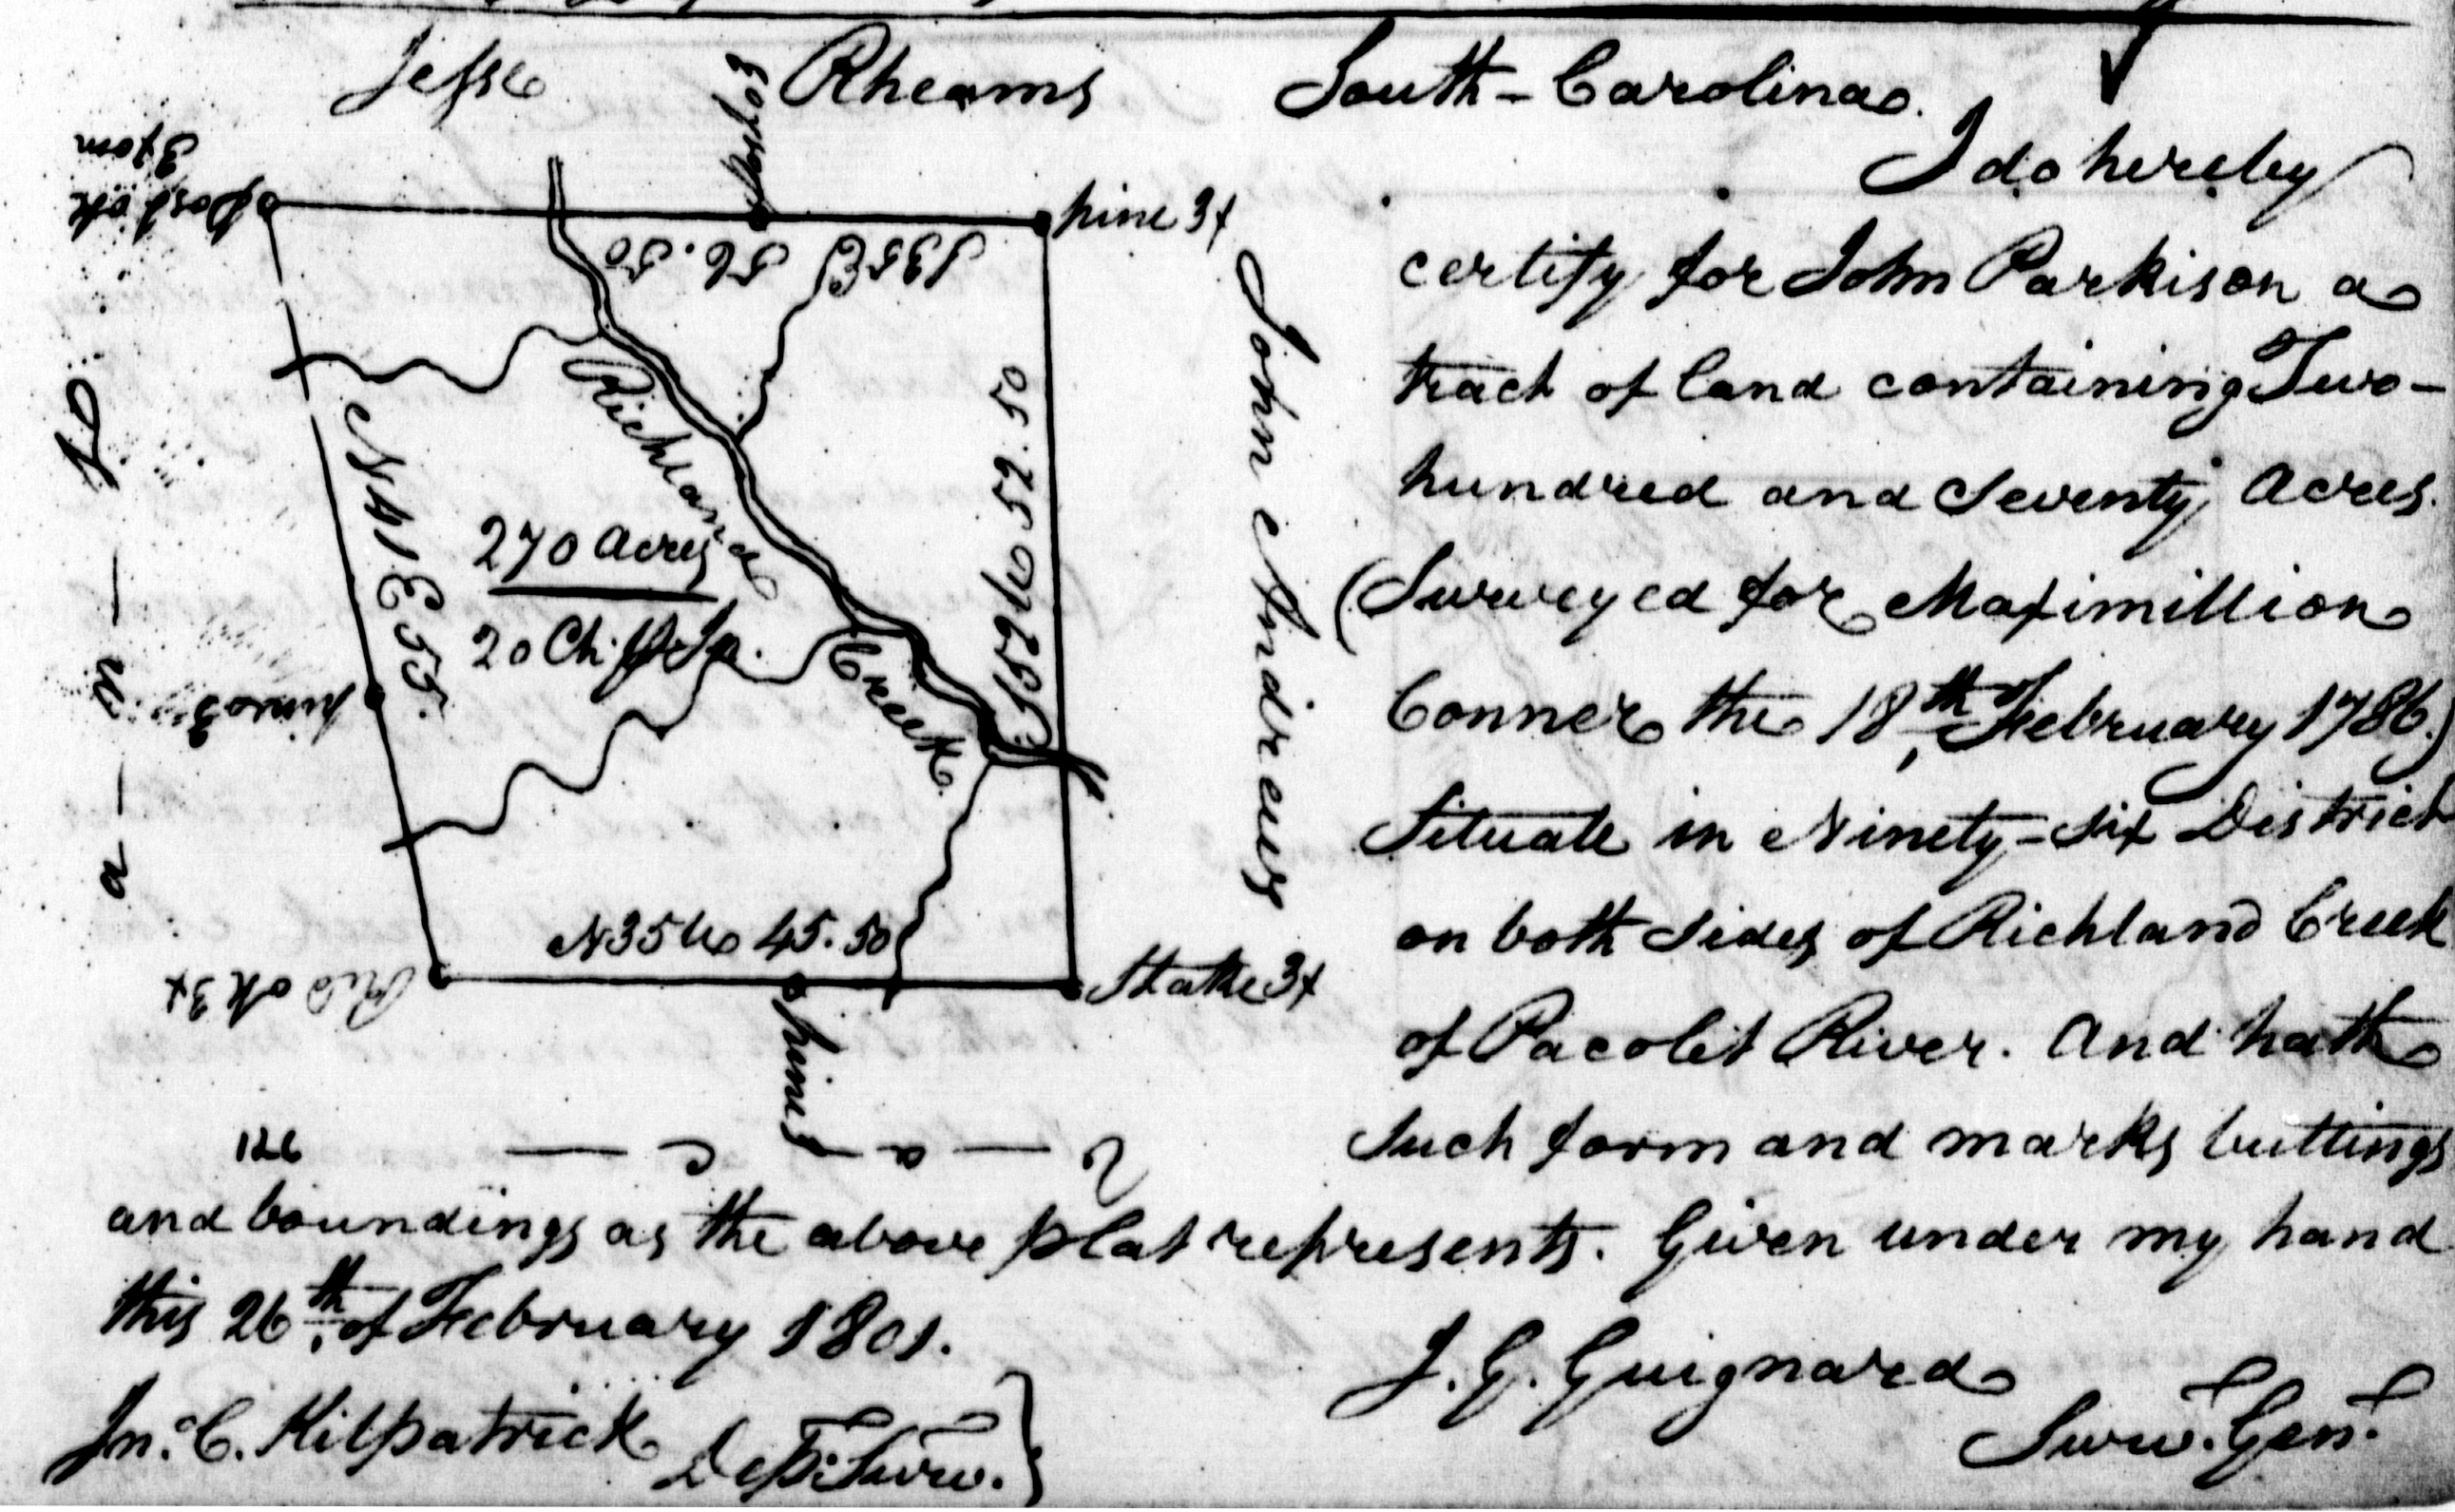 Jesse Rheams
South-Carolina.
I do hereby
certify for John Parkison a
tract of land containing Two-
hundred and Seventy Acres.
(Surveyed for Maximillion
Conner the 18th of February 1786.)
Situate in Ninety-six District
on both Sides of Richland Creek
of Pacolet River. And hath
Such form and marks buttings
and boundings as the above plat represents. Given under my hand
this 26th of February 1801.
J. G. Guignard
Surv. Gen.
Jn. C. Kilpatrick Dep. Surv.
3xom
post ok
pine 3x
S35E 56.50
John Andrews
S52W 52.50
Richland
Creek
270 Acres
20 Ch. pr In.
N41E 55.
pine 3
N35W 45.50
Rd ok 3x
Stake 3x
pines
V — a — c —
n — t
126